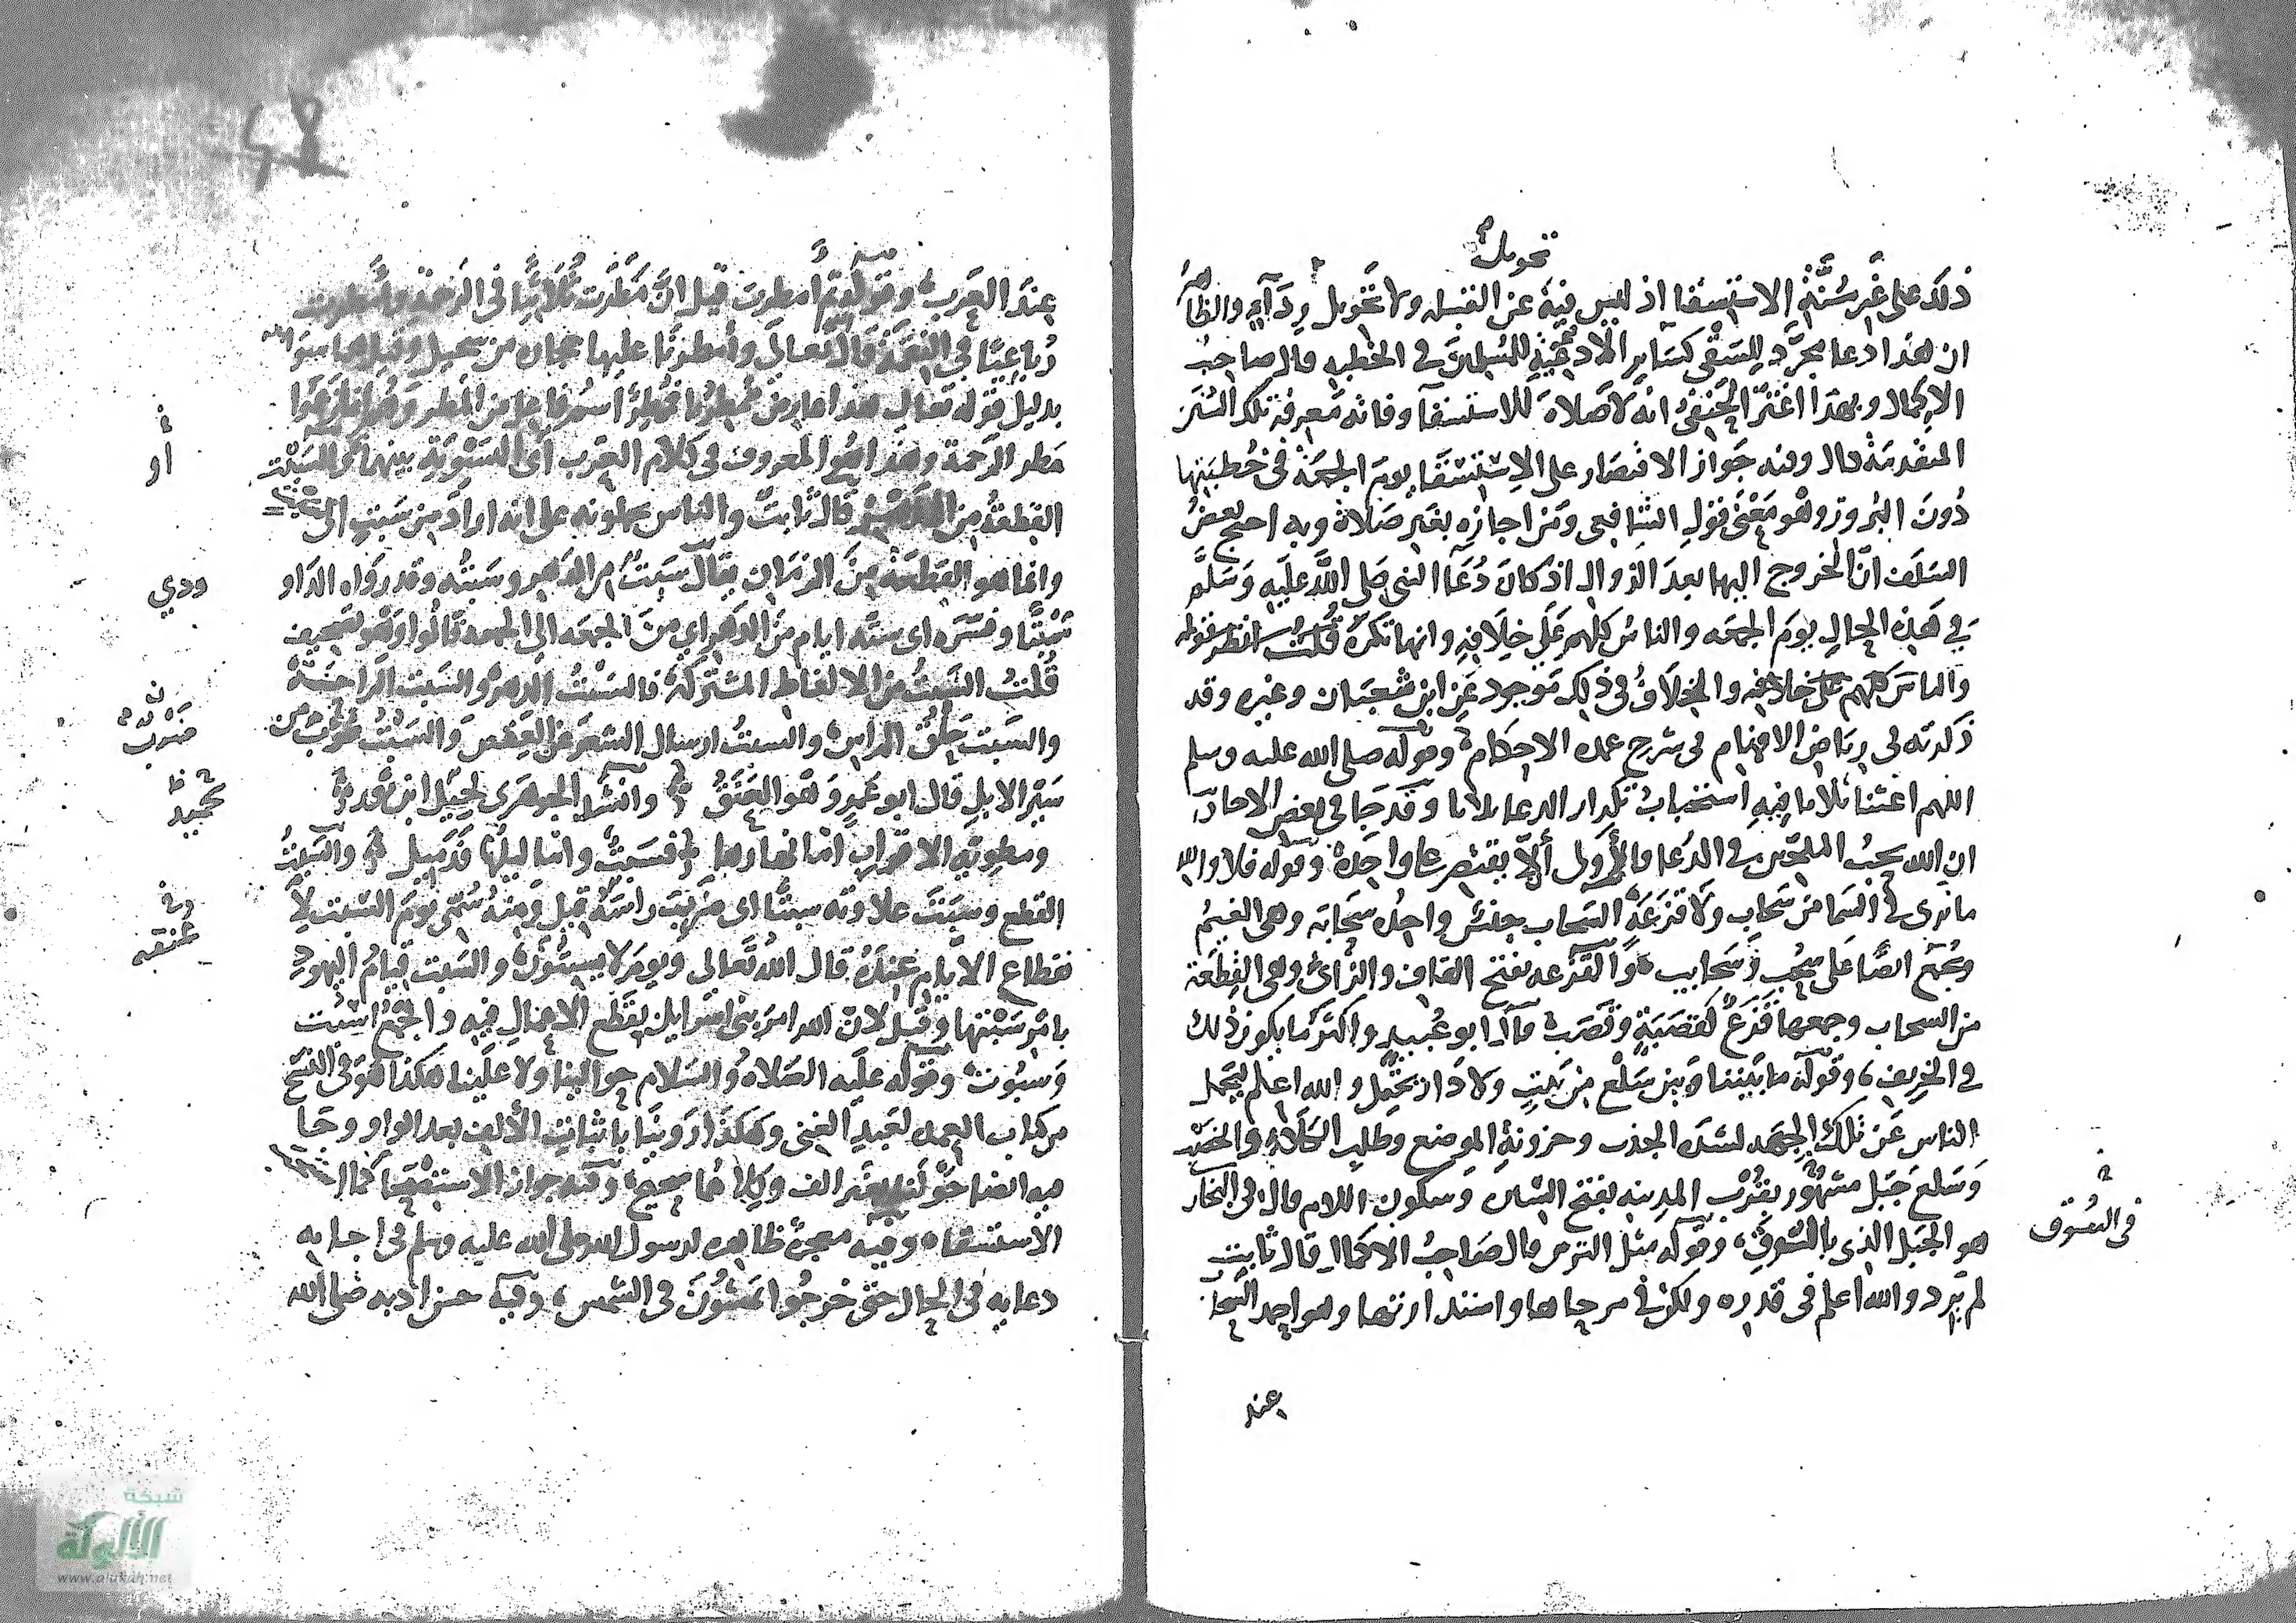 تحويل
ذلك على غير سنة الاستسقا اذ ليس فيه عن القبلة ولا تحويل رداء والظاهر
ان هذا دعا مجرد للسقى كساير الادعية للمسلمين فى الخطبه قال صاحب
الاكمال وبهذا اغتر الحنفى انه لا صلاة للاستسقآ وفاته معرفة تلك السنن
المتقدمة قال وفيه جواز الاقتصار على الاستسقا يوم الجمعة فى خطبتها
دون البروز وهو معنى قول الشافعى ومن اجازه بغير صلاة وبه احتج بعض
السلف ان الخروج اليها بعد الزوال اذ كان دعآ النبى صلى الله عليه وسلم
فى هذه الحال يوم الجمعه والناس كلهم على خلافه وانها بكرة قلت انظر قوله
والناس كلهم على خلافه والخلاف فى ذلك موجود عن ابن شعبان وغيره وقد
ذكرته فى رياض الافهام فى شرح عمدة الاحكام وقوله صلى الله عليه وسلم
اللهم اغثنا ثلاثا فيه استحباب تكرار الدعا ثلاثا وقد جا فى بعض الاحاد
ان الله يحب الملحين فى الدعا فالأولى ألا يقتصر على واحدة وقوله فلا والله
ما نرى فى السما من سحاب ولا قزعة السحاب جنس واحده سحابه وهى الغيم
وجمع ايضا على سحب وسحايب والقزعه بفتح القاف والزاى وهى القطعة
من السحاب وجمعها قزع كقصبة وقصب قال ابو عبيد واكثر ما يكون ذلك
فى الخريف، وقوله ما بيننا وبين سلع من بيت ولا دار يحتمل والله اعلم
الناس عن تلك الجهه لشدة الجدب وحزونة الموضع وطلب الكلاء والخصب
وسلع جبل مشهور بقرب المدينه بفتح السين وسكون اللام قال فى البخار
هو الجبل الذى بالسوق، وقوله مثل الترس قال صاحب الاكمال قال ثابت
لم يرد والله اعلم فى قدره ولكن فى مرجاها واستدارتها وهو احمد السحا
فى السوق
عند
عند العرب وقوله ثم امطرت قيل ان مطرت ثلاثيا فى الرحمة وأمطرت
رباعيا فى النقمة قال تعالى وأمطرنا عليها حجارة من سجيل وقيل هما سوا
بدليل قوله تعالى هذا عارض ممطرنا
مطر الرحمة وهذا هو المعروف فى كلام العرب اى التسوية بينهما والسبت
القطعة من قال ثابت والناس يحملونه على انه اراد من سبت الى
وانما هو القطعة من الزمان يقال سبت من الدهر وسبته وقد رواه الداو
سبتا وفسره اى ستة ايام من الدهر اى من الجمعه الى الجمعه قالوا وهو تصحيف
قلت السبت من الالفاظ المشتركة فالسبت الدهر والسبت الراحة
والسبت حلق الراس والسبت ارسال الشعر عن العقص والسبت ضرب من
سير الابل قال ابو عمرو وهو العنق وانشد الجوهرى لحميد ابن ثور
ومطوية الاقراب اما نهارها فسبت واما ليلها فذميل والسبت
القطع وسبت علاوته سبتا اى ضربت راسه قيل ومنه سمى يوم السبت لا
نقطاع الايام عنده قال الله تعالى ويوم لا يسبتون والسبت قيام اليهود
بامر سبتها وقيل لان الله امر بنى اسرايل بقطع الاعمال فيه والجمع اسبت
وسبوت وقوله عليه الصلاة والسلام حوالينا ولا علينا هكذا هو فى النسخ
من كتاب العمده لعبد الغنى وهكذا روينا باثبات الألف بعد الواو وجا
فيه ايضا حولنا بغير الف وكلاهما صحيح وفيه جواز الاستصحا كما
الاستسقاء وفيه معجزة ظاهرة لرسول الله صلى الله عليه وسلم فى اجابه
دعايه فى الحال حتى خرجوا يمشون فى الشمس، وفيه حسن ادبه صلى الله
او
ودي
ضرب
حميد
عنقه
شبكة
الألوكة
www.alukah.net